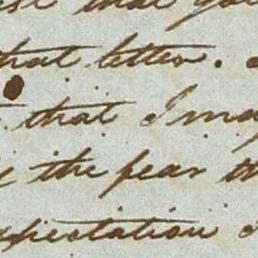 that
that letter.
that I may
the fear
expectation